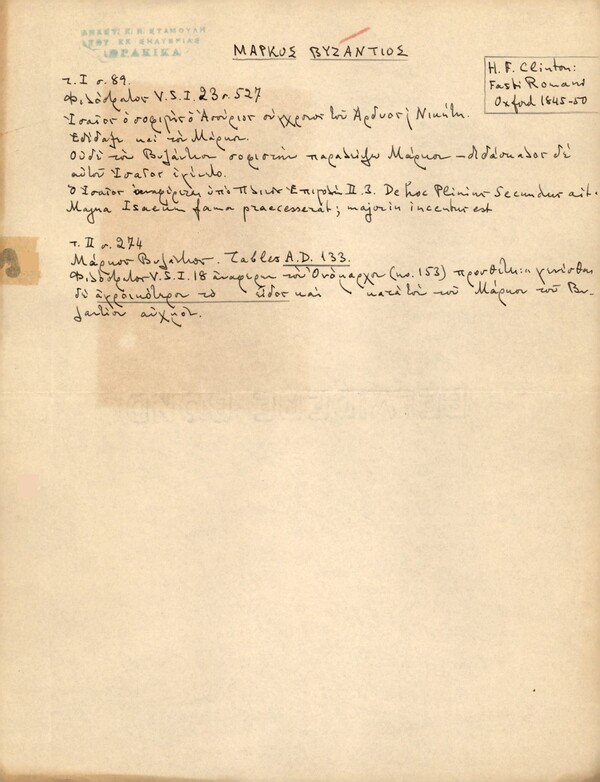 ΑΝΑΣΤ. Κ. Π. ΣΤΑΜΟΥΛΗ
ΤΟΥ ΕΚ ΣΗΛΥΒΡΙΑΣ
ΘΡΑΚΙΚΑ
ΜΑΡΚΟΣ ΒΥΖΑΝΤΙΟΣ
H. F. Clinton:
Fasti Romani
Oxford 1845-50
τ. I σ. 89.
Φιλόστρατος V.S.I. 23 σ. 527
Ισαίος ὁ σοφιστὴς ὁ Ἀσσύριος σύγχρονος τοῦ Νικήτη.
Εδίδαξε καὶ τὸν Μάρκον.
Οὐδὲ τὸν Βυζάντιον σοφιστὴν παραλείψω Μάρκον — διδάσκαλος δὲ
αὐτοῦ Ἰσαῖος ἐγένετο.
Ὁ Ἰσαῖος ἀναφέρεται ὑπὸ Πλινίου Ἐπιστολή II. 3. De hoc Plinius Secundus ait.
Magna Isaeum fama praecesserat; major inventus est
τ. II σ. 274
Μάρκος Βυζάντιος. Tables A.D. 133.
Φιλόστρατος V.S.I. 18 ἀναφέρει τὸν Ὀνόμαρχον (no. 153) προσθέτει: γενέσθαι
δὲ ἀγροικότερον τὸ εἶδος καὶ κατὰ τὸν τοῦ Μάρκου τοῦ Βυ-
ζαντίου αὐχμόν.